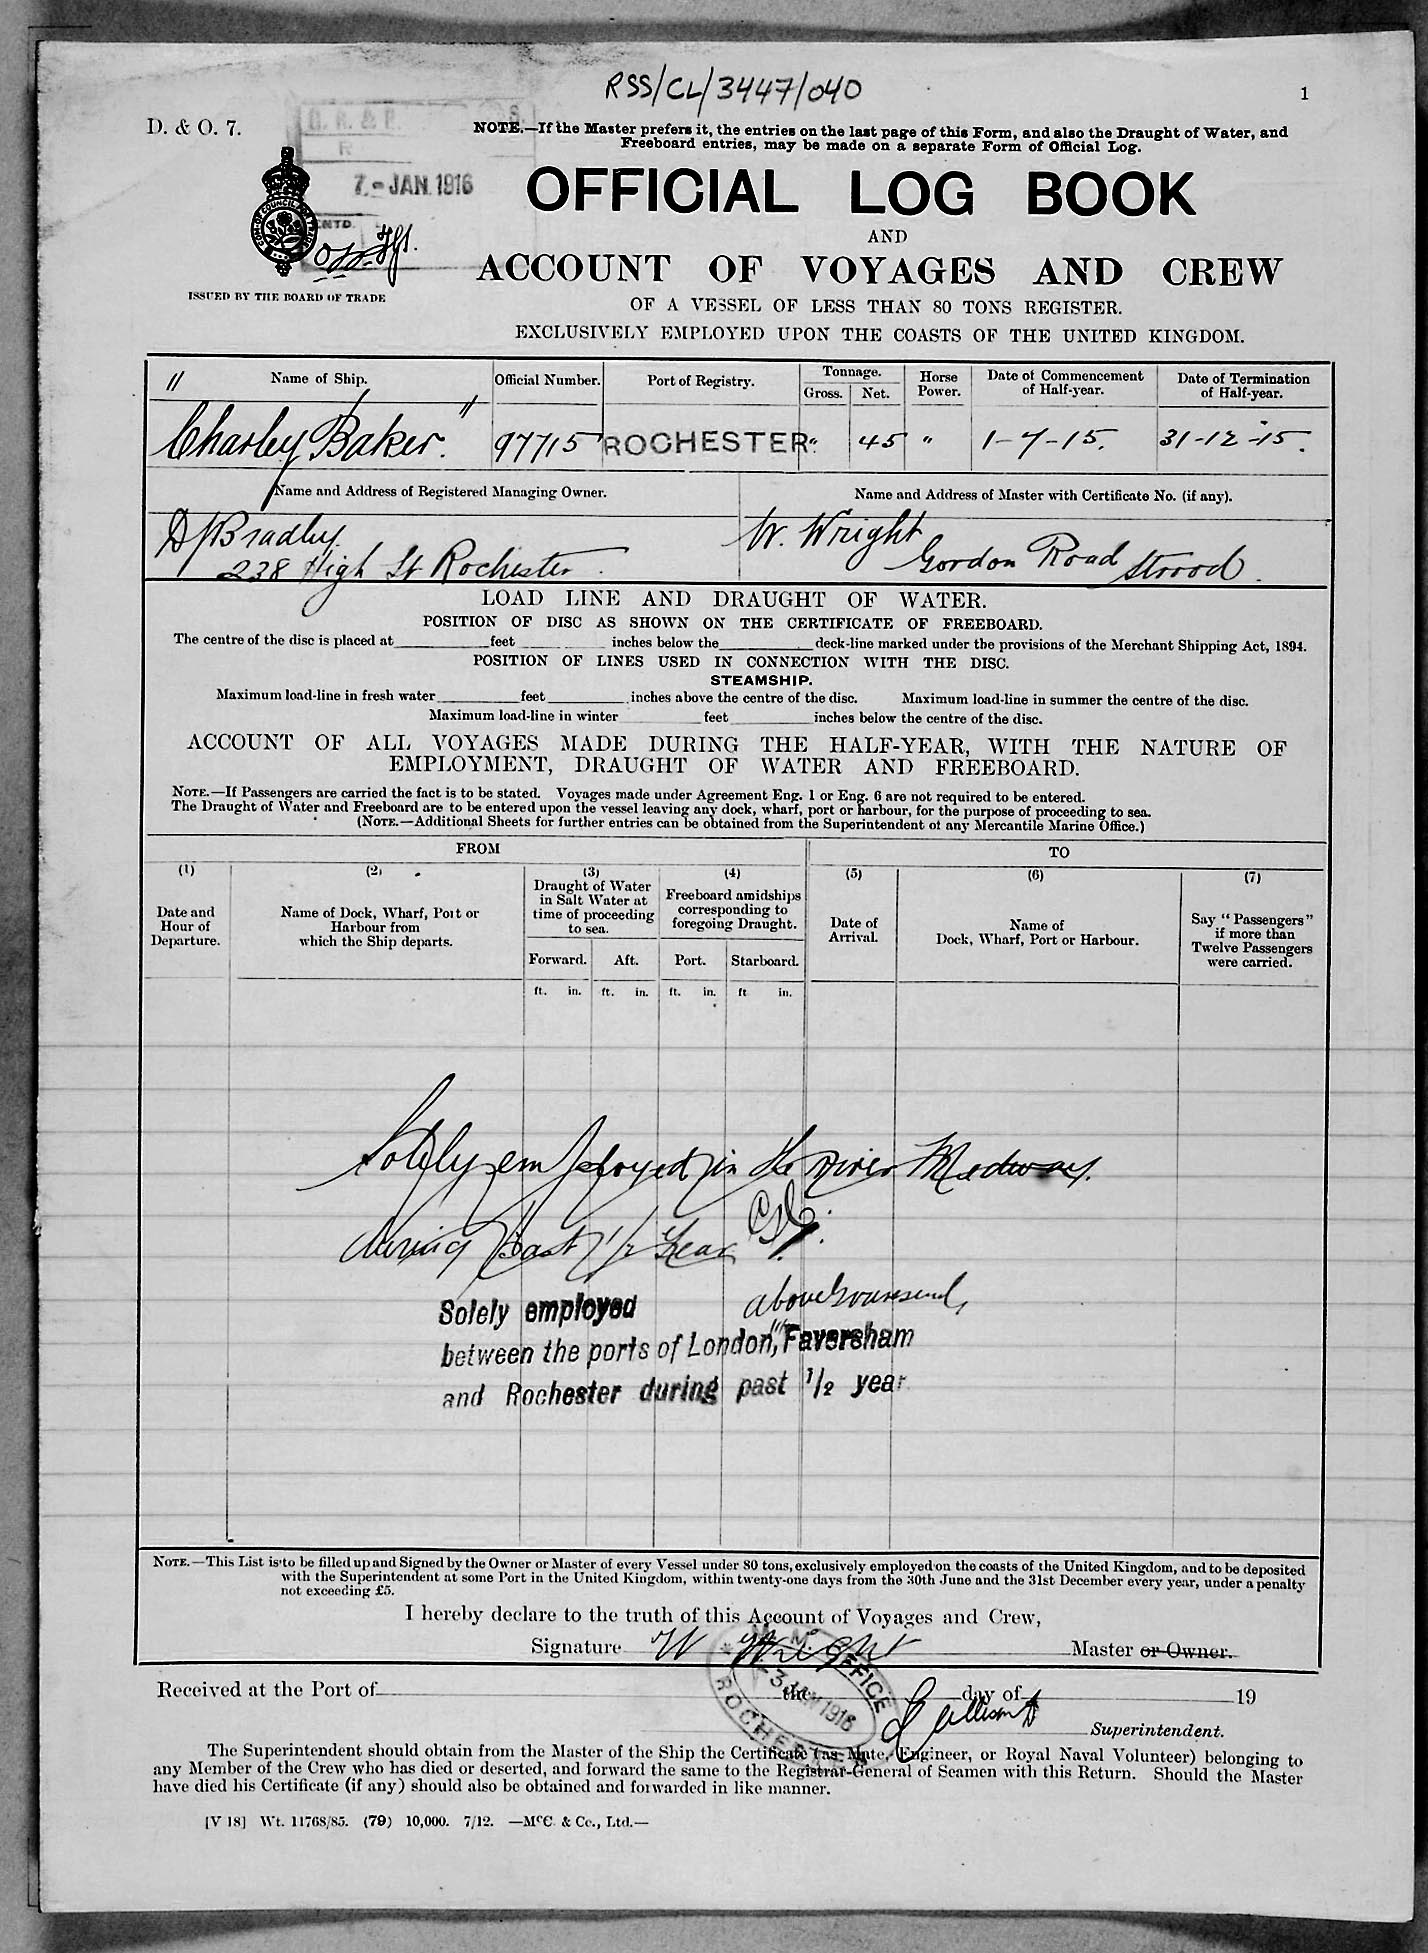 RSS/CL/3447/040
1
D. & O. 7.
NOTE.—If the Master prefers it, the entries on the last page of this Form, and also the Draught of Water, and
Freeboard entries, may be made on a separate Form of Official Log.
7.-JAN.1916
OFFICIAL LOG BOOK
AND
ACCOUNT OF VOYAGES AND CREW
ISSUED BY THE BOARD OF TRADE
OF A VESSEL OF LESS THAN 80 TONS REGISTER.
EXCLUSIVELY EMPLOYED UPON THE COASTS OF THE UNITED KINGDOM.
Name of Ship. Official Number. Port of Registry. Tonnage. Gross. Net. Horse Power. Date of Commencement of Half-year. Date of Termination of Half-year.
"Charley Baker." 97715 ROCHESTER " 45 " 1-7-15. 31-12-15.
Name and Address of Registered Managing Owner. Name and Address of Master with Certificate No. (if any).
Bradley W. Wright
238 High St Rochester. Gordon Road Strood.
LOAD LINE AND DRAUGHT OF WATER.
POSITION OF DISC AS SHOWN ON THE CERTIFICATE OF FREEBOARD.
The centre of the disc is placed at feet inches below the deck-line marked under the provisions of the Merchant Shipping Act, 1894.
POSITION OF LINES USED IN CONNECTION WITH THE DISC.
STEAMSHIP.
Maximum load-line in fresh water feet inches above the centre of the disc. Maximum load-line in summer the centre of the disc.
Maximum load-line in winter feet inches below the centre of the disc.
ACCOUNT OF ALL VOYAGES MADE DURING THE HALF-YEAR, WITH THE NATURE OF
EMPLOYMENT, DRAUGHT OF WATER AND FREEBOARD.
NOTE.—If Passengers are carried the fact is to be stated. Voyages made under Agreement Eng. 1 or Eng. 6 are not required to be entered.
The Draught of Water and Freeboard are to be entered upon the vessel leaving any dock, wharf, port or harbour, for the purpose of proceeding to sea.
(NOTE.—Additional Sheets for further entries can be obtained from the Superintendent of any Mercantile Marine Office.)
FROM TO
(1) (2) (3) (4) (5) (6) (7)
Date and Hour of Departure.
Name of Dock, Wharf, Port or Harbour from which the Ship departs.
Draught of Water in Salt Water at time of proceeding to sea.
Freeboard amidships corresponding to foregoing Draught.
Date of Arrival.
Name of Dock, Wharf, Port or Harbour.
Say "Passengers" if more than Twelve Passengers were carried.
Forward. Aft. Port. Starboard.
ft. in. ft. in. ft. in. ft in.
Solely employed in the river Medway.
during past 1/2 Year
above Gravesend,
Solely employed
between the ports of London, Faversham
and Rochester during past 1/2 year
NOTE.—This List is to be filled up and Signed by the Owner or Master of every Vessel under 80 tons, exclusively employed on the coasts of the United Kingdom, and to be deposited
with the Superintendent at some Port in the United Kingdom, within twenty-one days from the 30th June and the 31st December every year, under a penalty
not exceeding £5.
I hereby declare to the truth of this Account of Voyages and Crew,
Signature W Wright Master or Owner.
Received at the Port of the day of 19
M. M. OFFICE
3 JAN 1916
ROCHESTER
Superintendent.
The Superintendent should obtain from the Master of the Ship the Certificate (as Mate, Engineer, or Royal Naval Volunteer) belonging to
any Member of the Crew who has died or deserted, and forward the same to the Registrar-General of Seamen with this Return. Should the Master
have died his Certificate (if any) should also be obtained and forwarded in like manner.
[V 18] Wt. 11768/85. (79) 10,000. 7/12. —McC. & Co., Ltd.—